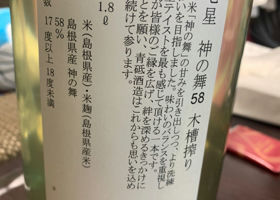 星 神の舞58 木槽搾り
米「神の舞」の甘みを引き出しつつ、より洗練
を目指しました。味わいのバランスを重視し
イストを最も感じて頂ける一本です。
が皆様のご縁を広げ、絆を深めるきっかけに
とを願い、青砥酒造はこれからも思いを込め
続けて参ります。
1.8ℓ
米(島根県産)・米麹(島根県産米)
島根県産 神の舞
58%
数 17度以上18度未満